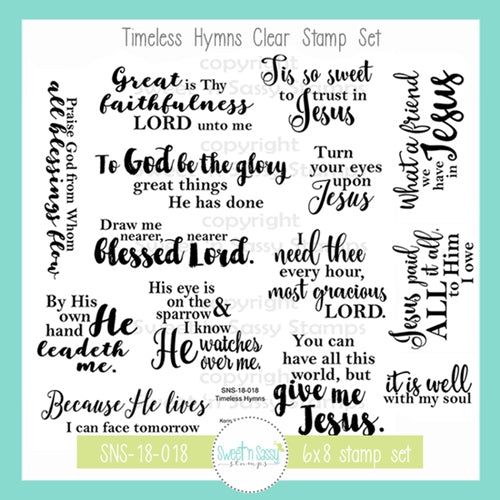 Timeless Hymns Clear Stamp Set
Praise God from Whom
all blessings flow
Great is Thy
faithfulness
LORD unto me
Tis so sweet
to trust in
Jesus
What a friend
we
have
in
Jesus
To God be the glory
great things
He has done
Turn
your eyes
upon
Jesus
Draw me
nearer, nearer
blessed Lord.
I
need thee
every hour,
most gracious
LORD.
Jesus paid
ALL it all.
to Him
I owe
By His
own
hand He
leadeth
me.
His eye is
on the
sparrow &
I know
He watches
over me.
You can
have all this
world, but
give me
Jesus.
it is well
with my soul
Because He lives
I can face tomorrow
SNS-18-018
Timeless Hymns
copyright
Sweet n Sassy Stamps
SNS-18-018
Sweet'n Sassy
stamps
6x8 stamp set